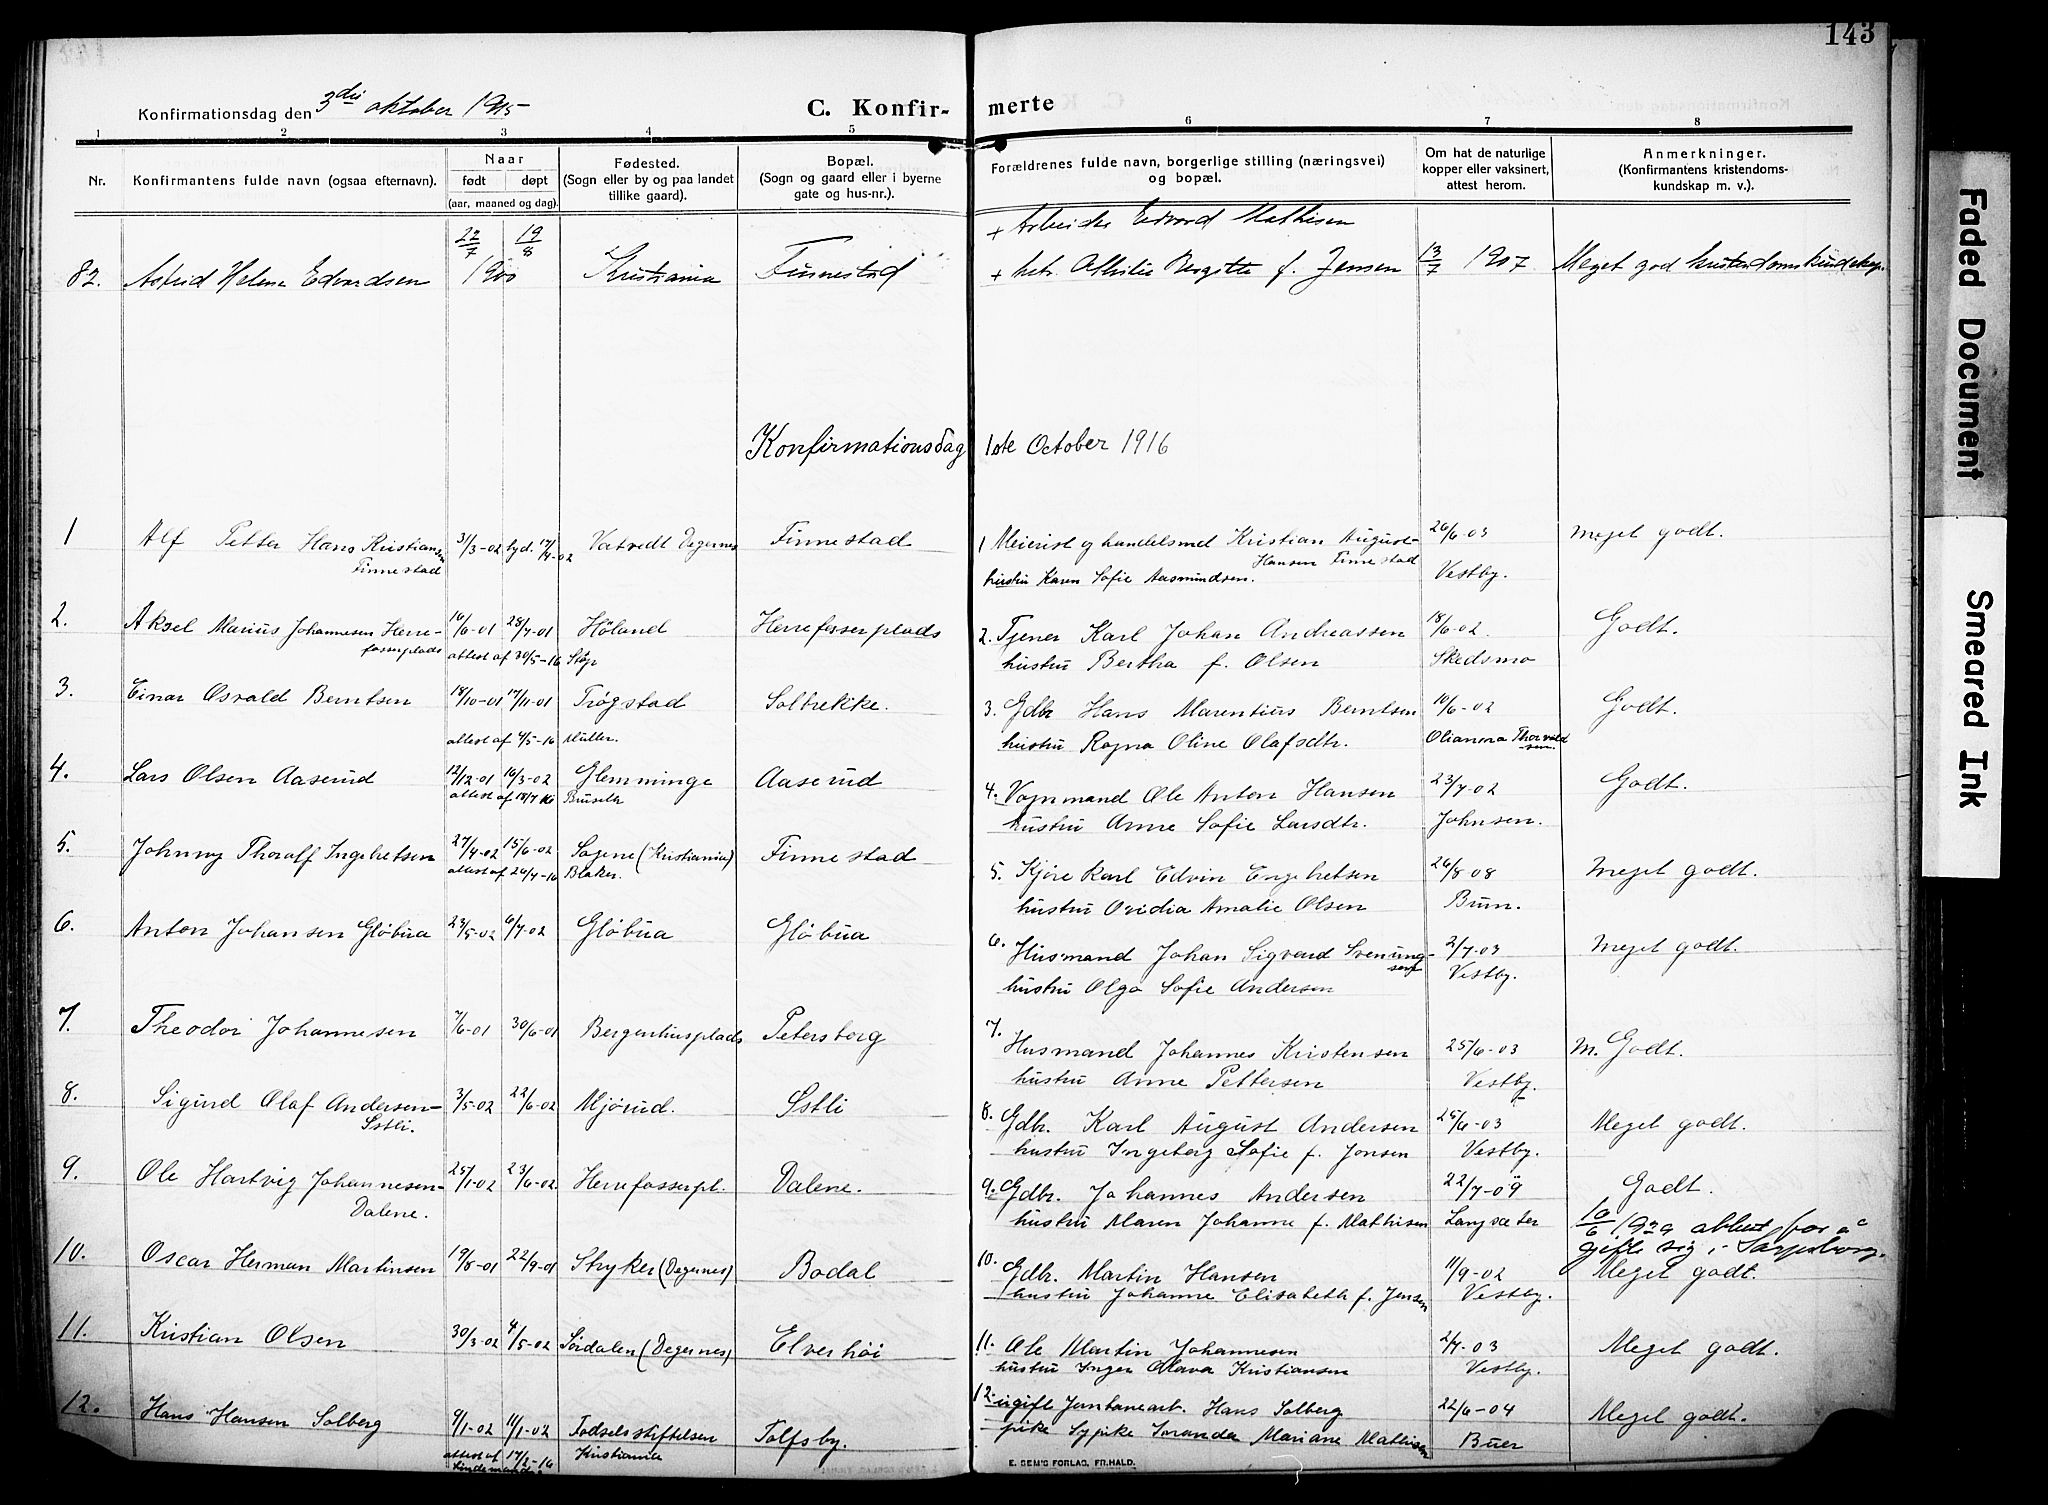 143
Konfirmationsdag den 3die oktober 1915
C. Konfir- merte
1 2 3 4 5 6 7 8
Nr.
Konfirmantens fulde navn (ogsaa efternavn).
Naar
født døpt
(aar, maaned og dag).
Fødested.
(Sogn eller by og paa landet
tillike gaard).
Bopæl.
(Sogn og gaard eller i byerne
gate og hus-nr.).
Forældrenes fulde navn, borgerlige stilling (næringsvei)
og bopæl.
Om hat de naturlige
kopper eller vaksinert,
attest herom.
Anmerkninger.
(Konfirmantens kristendoms-
kundskap m. v.).
82. Astrid Helene Edvardsen 22/7 1900 19/8 Kristiania Finnestad
+ Arbeider Edvard Mathisen
+ hstr. Othilie Bergitte f. Jensen 13/7 1907 Meget god kristendomskundskap.
Konfirmationsdag 1ste October 1916
1 Alf Petter Hans Kristiansen 31/3-02 hjd. 17/4-02 Vatvedt Degernes Finnestad
Finnestad
1 Meierist og handelsmd Kristian August 26/6-03 Meget godt.
Hansen Finnestad
hustru Karen Sofie Aasmundsen. Vestby.
2. Aksel Marius Johannesen Herre- 10/6-01 28/7-01 Høland Herrefosserplads
fosserplads attest af 30/5-16
2. Tjener Karl Johan Andreassen 18/6-02. Godt.
hustru Bertha f. Olsen Skedsmo
3. Einar Osvald Berntsen 18/10-01 17/11-01 Trøgstad Solbrekke.
attest af 4/5-16 Müller.
3. Gdbr Hans Marentius Berntsen 10/6-02 Godt.
hustru Ragna Oline Olafsdtr. Olianna Thorvald
sen.
4. Lars Olsen Aaserud 12/12-01 16/3-02 Glemminge Aaserud
attest af 18/7 16
4. Vognmand Ole Anton Hansen 23/7-02 Godt.
hustru Anne Sofie Larsdtr. Johnsen.
5. Johnny Thoralf Ingebretsen 27/4-02 15/6-02 Sagene (Kristiania) Finnestad
attest af 26/7-16 Blaker.
5. Kjøre Karl Edvin Engebretsen 26/8-08 Meget godt.
hustru Ovidia Amalie Olsen Bum.
6. Anton Johansen Gløbua 23/5-02 6/7-02 Gløbua Gløbua
6. Husmand Johan Sigvard Svenung- 2/7-03 Meget godt.
sen
hustru Olga Sofie Andersen Vestby.
7. Theodor Johannesen 7/6-01 30/6-01 Bergenhusplads Petersborg
7. Husmand Johannes Kristensen 25/6-03 M. Godt.
hustru Anne Pettersen Vestby.
8. Sigurd Olaf Andersen- 3/5-02 22/6-02 Mjørud. Sstli
Sstli.
8. Gdbr. Karl August Andersen 25/6-03 Meget godt.
hustru Ingeborg Sofie f. Jonsen Vestby.
9. Ole Hartvig Johannesen- 25/1-02 23/6-02 Herrefosserpl. Dalene.
Dalene.
9. Gdbr. Johannes Andersen 22/7-09 Godt.
hustru Maren Johanne f. Mathisen Langsæter 10/6 1929 attest for å
gifte sig i Sarpsborg.
10. Oscar Herman Martinsen 19/8-01 22/9-01 Stryker (Degernes) Bodal
10. Gdbr. Martin Hansen 11/9-02 Meget godt.
hustru Johanne Elisabeth f. Jensen Vestby.
11. Kristian Olsen 30/3-02 4/5-02 Sørdalen (Degernes) Elverhøi
11. Ole Martin Johannesen 2/7-03 Meget godt.
hustru Inger Olava Kristiansen Vestby.
12. Hans Hansen Solberg 9/1-02 11/1-02 Fødselsstiftelsen Tolfsby.
attest af 17/2-16 Kristiania
12. ugift Jernbanearb. Hans Solberg 22/6-04 Meget godt.
pike Sypike Mariane Mathisen Buer
E. SEM'S FORLAG, FR.HALD.
Faded Document
Smeared Ink